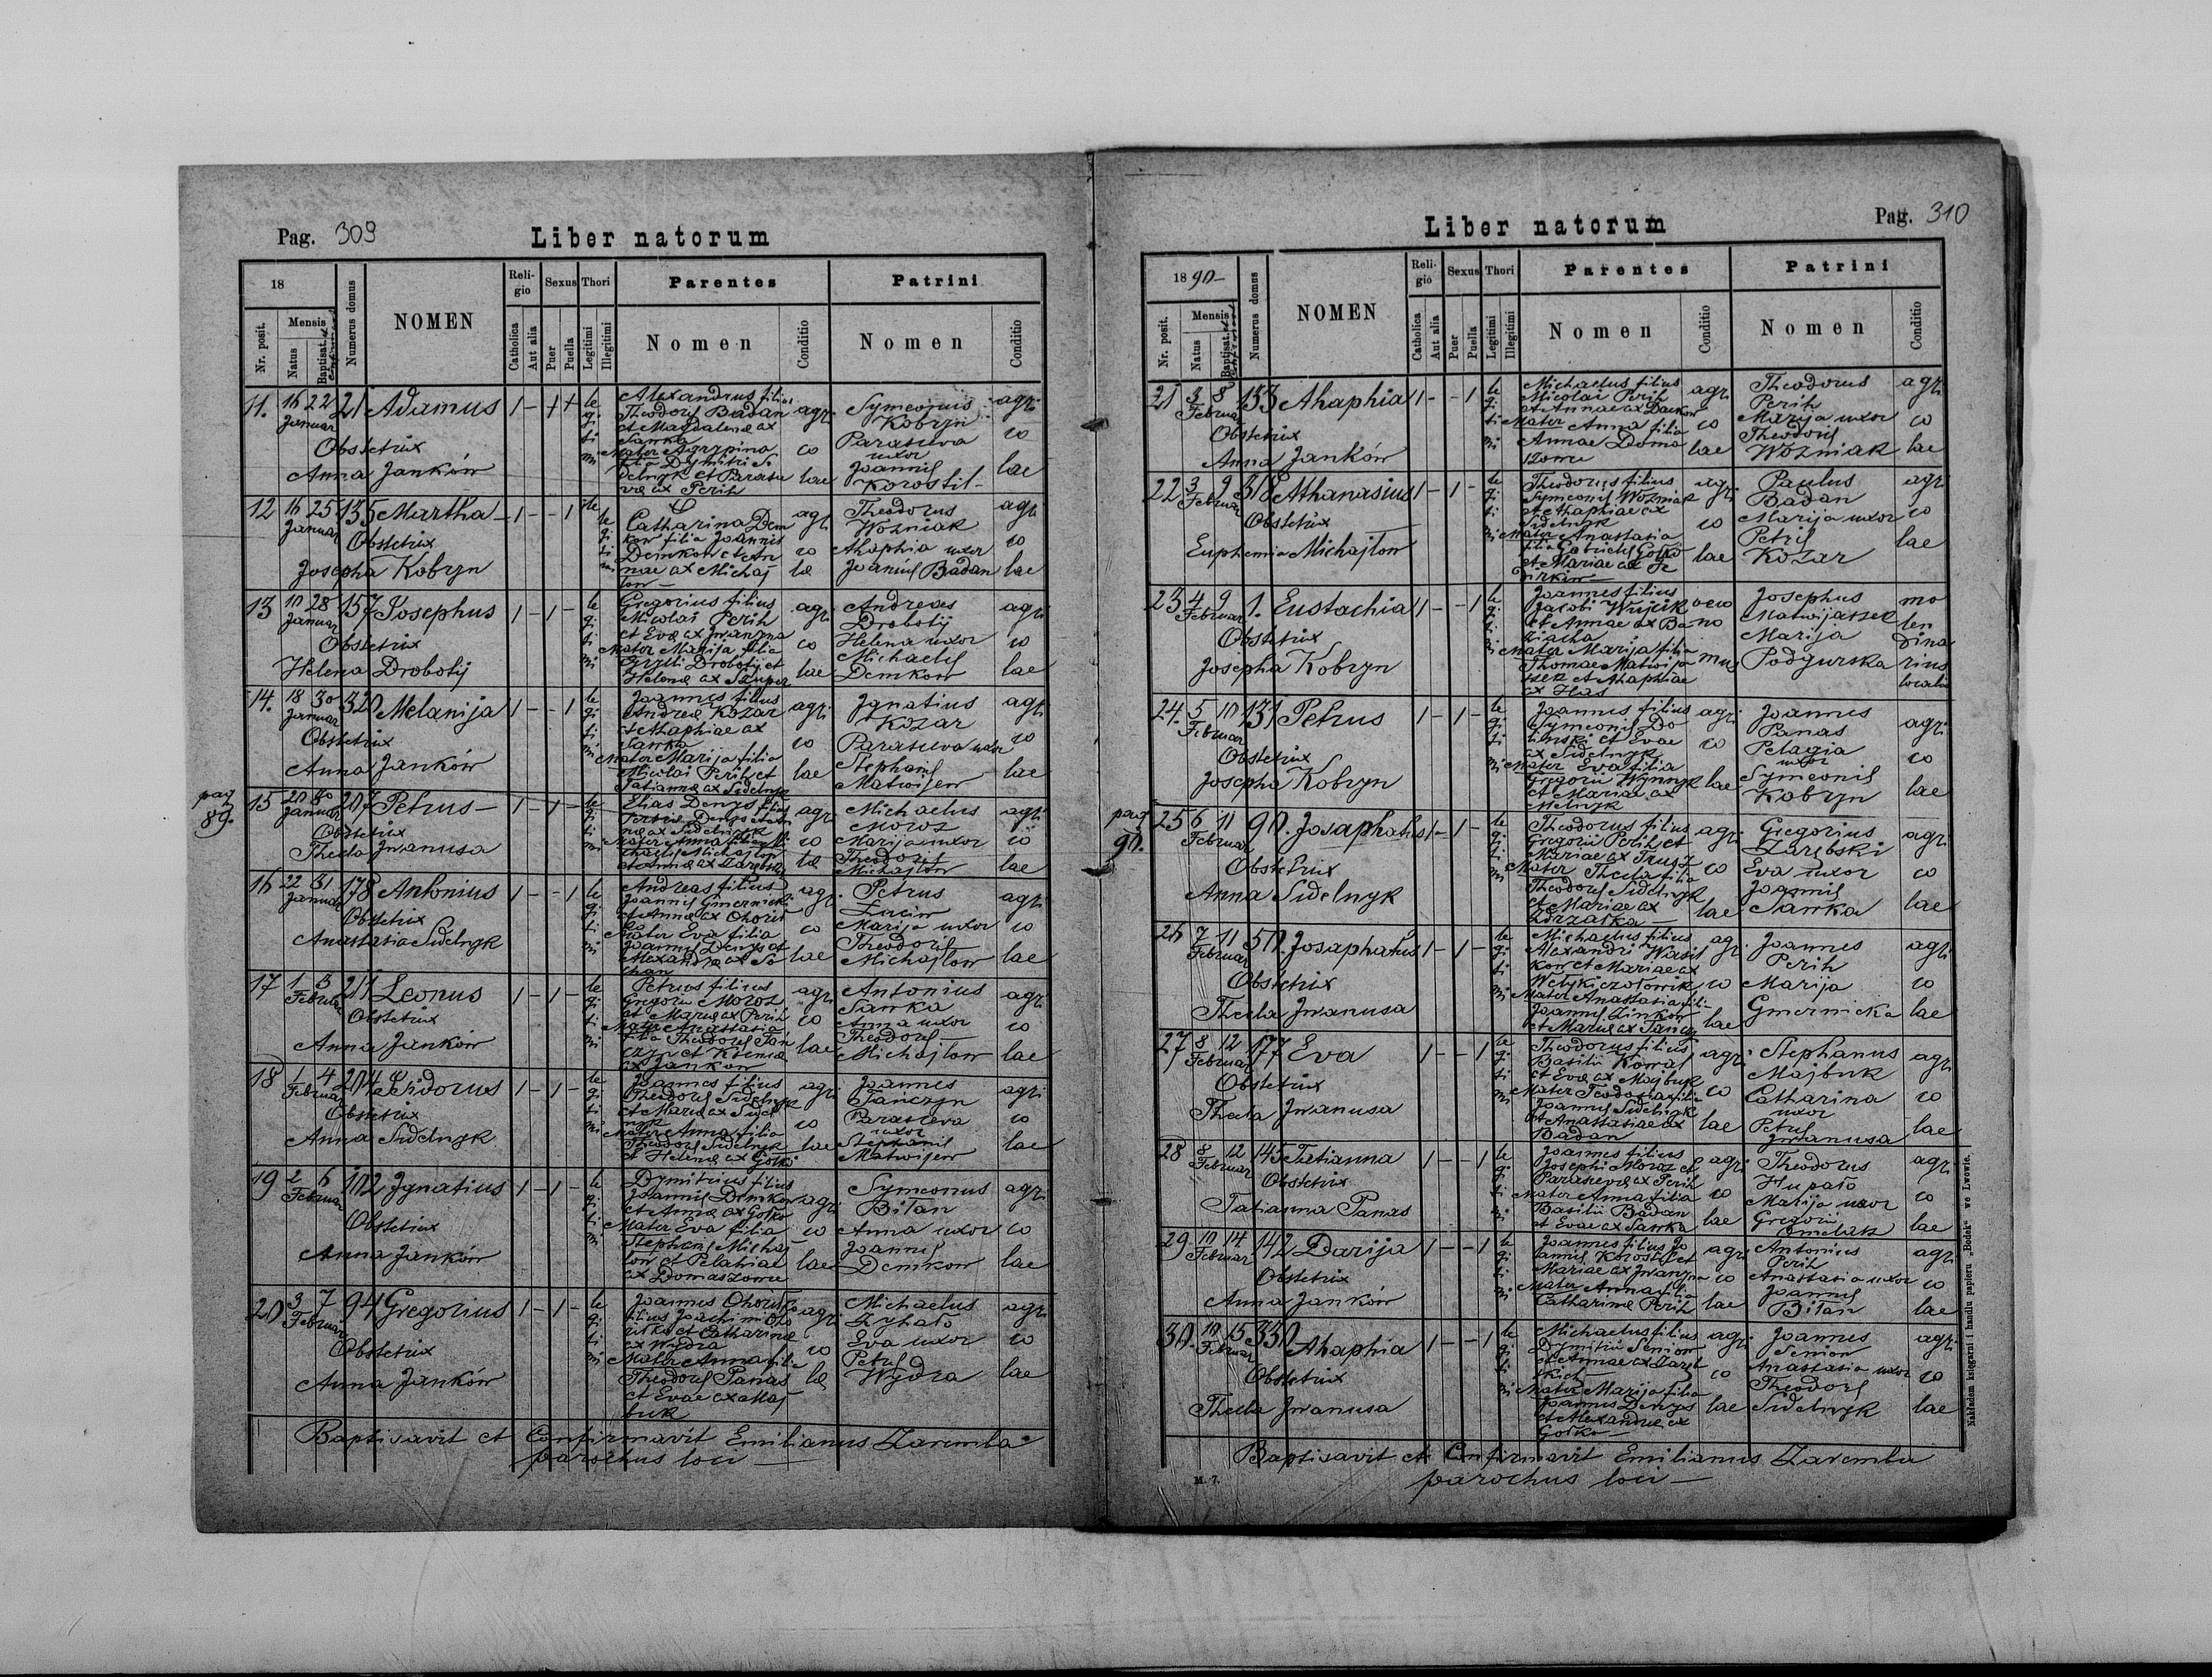 Pag. 309
Liber natorum
18
Nr. posit.
Mensis
Natus
Baptisat.
Numerus domus
NOMEN
Religio
Catholica
Aut alia
Sexus
Puer
Puella
Thori
Legitimi
Illegitimi
Parentes
Nomen
Conditio
Patrini
Nomen
Conditio
11. 16 22 Januar 21 Adamus
Obstetrix
Anna Janków
legitimi
Alexandrus filius
Theodori Badan
et Magdalenæ ex
Sawka
Mater Agrypina
filia Dymitri Si
delnyk et Parasce
væ ex Perih
agricolae
Symeonis
Kobryn
Parasceva
uxor
Joannis
Korostil
agricolae
12 16 25 Januar 135 Martha
Obstetrix
Josepha Kobryn
Catharina Dem
kow filia Joannis
Demkow et An
nae ex Michaj
low
Theodorus
Wozniak
Ahaphia uxor
Joannis Badan
agricolae
13 10 28 Januar 157 Josephus
Obstetrix
Helena Drobotij
legitimi
Gregorius filius
Nicolai Perih
et Evæ ex Jwanyna
Mater Marija filia
Cyrilli Drobotij et
Helenæ ex Szuper
agricolae
Andreas
Drobotij
Helena uxor
Michaelis
Demkow
agricolae
14. 18 30 Januar 320 Melanija
Obstetrix
Anna Janków
legitimi
Joannes filius
Andreæ Kozar
et Ahaphiae ex
Sawka
Mater Marija filia
Nicolai Perih et
Tatiannæ ex Sidelnyk
agricolae
Jgnatius
Kozar
Parasceva uxor
Stephani
Matwijew
agricolae
pag
89.
15 20 30 Januar 207 Petrus
Obstetrix
Thecla Jwanusa
legitimi
Elias Denys filius
Michaelus
Moroz
Marija uxor
Theodori
Michajlow
agricolae
16 22 31 Januar 178 Antonius
Obstetrix
Anastasia Sidelnyk
legitimi
Andreas filius
Joannis Gmernicki
et Annæ ex Ohoril
ko
Mater Eva filia
Joannis Denys et
Alexandræ ex So
chan
agricolae
Petrus
Luciw
Marija uxor
Theodori
Michajlow
agricolae
17 1 3 Februar 211 Leonus
Obstetrix
Anna Janków
legitimi
Petrus filius
Gregorii Moroz
et Mariæ ex Perih
Mater Anastasia
filia Theodori Tan
czyn et Xseniæ
ex Jankow
agricolae
Antonius
Sawka
Anna uxor
Theodori
Michajlow
agricolae
18 1 4 Februar 204 Isidorus
Obstetrix
Anna Sidelnyk
legitimi
Joannes filius
Theodori Sidelnyk
et Mariæ ex Sidel
nyk
Mater Anna filia
Theodori Sidelnyk
et Helenæ ex Gołko
agricolae
Joannes
Tanczyn
Parasceva
uxor
Stephani
Matwijew
agricolae
19 2 6 Februar 102 Jgnatius
Obstetrix
Anna Janków
legitimi
Dymitrius filius
Joannis Demkow
et Annæ ex Gołko
Mater Eva filia
Stephani Michaj
low et Pelahiae
ex Domaszowe
agricolae
Symeonus
Biłan
Anna uxor
Joannis
Demkow
agricolae
20 3 7 Februar 94 Gregorius
Obstetrix
Anna Janków
legitimi
Joannes Ohorilko
filius Joachimi Oho
rilko et Catharinæ
ex Wydra
Mater Anna filia
Theodori Panas
et Evae ex Maj
buk
Michaelus
Zyhało
Eva uxor
Petri
Wydra
agricolae
Baptisavit et Confirmavit Emilianus Zaremba
parochus loci
Liber natorum
Pag. 310
1890
Nr. posit.
Mensis
Natus
Baptisat.
Numerus domus
NOMEN
Religio
Catholica
Aut alia
Sexus
Puer
Puella
Thori
Legitimi
Illegitimi
Parentes
Nomen
Conditio
Patrini
Nomen
Conditio
21 3 8 Februar 133 Ahaphia
Obstetrix
Anna Janków
legitimi
Michaelus filius
Nicolai Perih
et Annae ex Dackow
Mater Anna filia
Annae Doma
szowe
agricolae
Theodorus
Perih
Marija uxor
Theodori
Wozniak
agricolae
22 3 9 Februar 318 Athanasius
Obstetrix
Euphemia Michajlow
legitimi
Theodorus filius
Symeonis Wozniak
et Ahaphiae ex
Sidelnyk
Mater Anastasia
filia Gabrielis Gołko
et Mariae ex
agricolae
Paulus
Badan
Marija uxor
Petri
Kozar
agricolae
23 4 9 Februar 1. Eustachia
Obstetrix
Josepha Kobryn
legitimi
Joannes filius
Jacobi Wujcik
et Annae ex Ba
ziacha
Mater Marija filia
Thomae Matwija
szek et Ahaphiae
ex Has
oeconomus
Josephus
Matwijaszek
Marija
Podgurska
molendinarius
localis
24. 5 10 Februar 131 Petrus
Obstetrix
Josepha Kobryn
legitimi
Joannes filius
Symeonis Do
linski et Evae
ex Sidelnyk
Mater Eva filia
Gregorii Wynnyk
et Mariae ex
Melnyk
agricolae
Joannes
Panas
Pelagia
uxor
Symeonis
Kobryn
agricolae
pag
90.
25 6 11 Februar 90. Josaphatus
Obstetrix
Anna Sidelnyk
legitimi
Theodorus filius
Gregorii Perih et
Mariae ex Trusz
Mater Thecla filia
Theodori Sidelnyk
et Mariae ex
Zdrzałka
agricolae
Gregorius
Zarębski
Eva uxor
Joannis
Sawka
agricolae
26 7 11 Februar 50. Josaphatus
Obstetrix
Thecla Jwanusa
legitimi
Michaelus filius
Alexandri Wasil
kow et Mariae ex
Welykiczołowik
Mater Anastasia fili
Joannis Zinkow
et Mariæ ex Tanczy
agricolae
Joannes
Perih
Marija
Gmernicka
agricolae
27 8 12 Februar 177 Eva
Obstetrix
Thecla Jwanusa
legitimi
Theodorus filius
Basilii Kowal
et Evæ ex Majbuk
Mater Teodosia filia
Joannis Sidelnyk
et Anastasiae ex
Badan
agricolae
Stephanus
Majbuk
Catharina
uxor
Petri
Jwanusa
agricolae
28 8 12 Februar 145 Tetianna
Obstetrix
Tatianna Panas
legitimi
Joannes filius
Josephi Moroz et
Parascevæ ex Perih
Mater Anna filia
Basilii Badan
et Evae ex Sawka
agricolae
Theodorus
Hupało
Marija uxor
Gregorii
Omelasz
agricolae
29 10 14 Februar 142 Darija
Obstetrix
Anna Janków
legitimi
Joannes filius Jo
annis Korostil et
Mariae ex Jwanyna
Mater Anna filia
Catharinæ Perih
agricolae
Antonius
Perih
Anastasia uxor
Joannis
Biłan
agricolae
30. 10 15 Februar 330 Ahaphia
Obstetrix
Thecla Jwanusa
legitimi
Michaelus filius
Dymitrii Seniow
et Annae ex Zaręb
skich
Mater Marija filia
Joannis Denys
et Alexandræ ex
Gołko
agricolae
Joannes
Seniow
Anastasia uxor
Theodori
Sidelnyk
agricolae
Baptisavit et Confirmavit Emilianus Zaremba
parochus loci
M. 7.
Nakładem księgarni i handlu papieru „Bodek" we Lwowie.